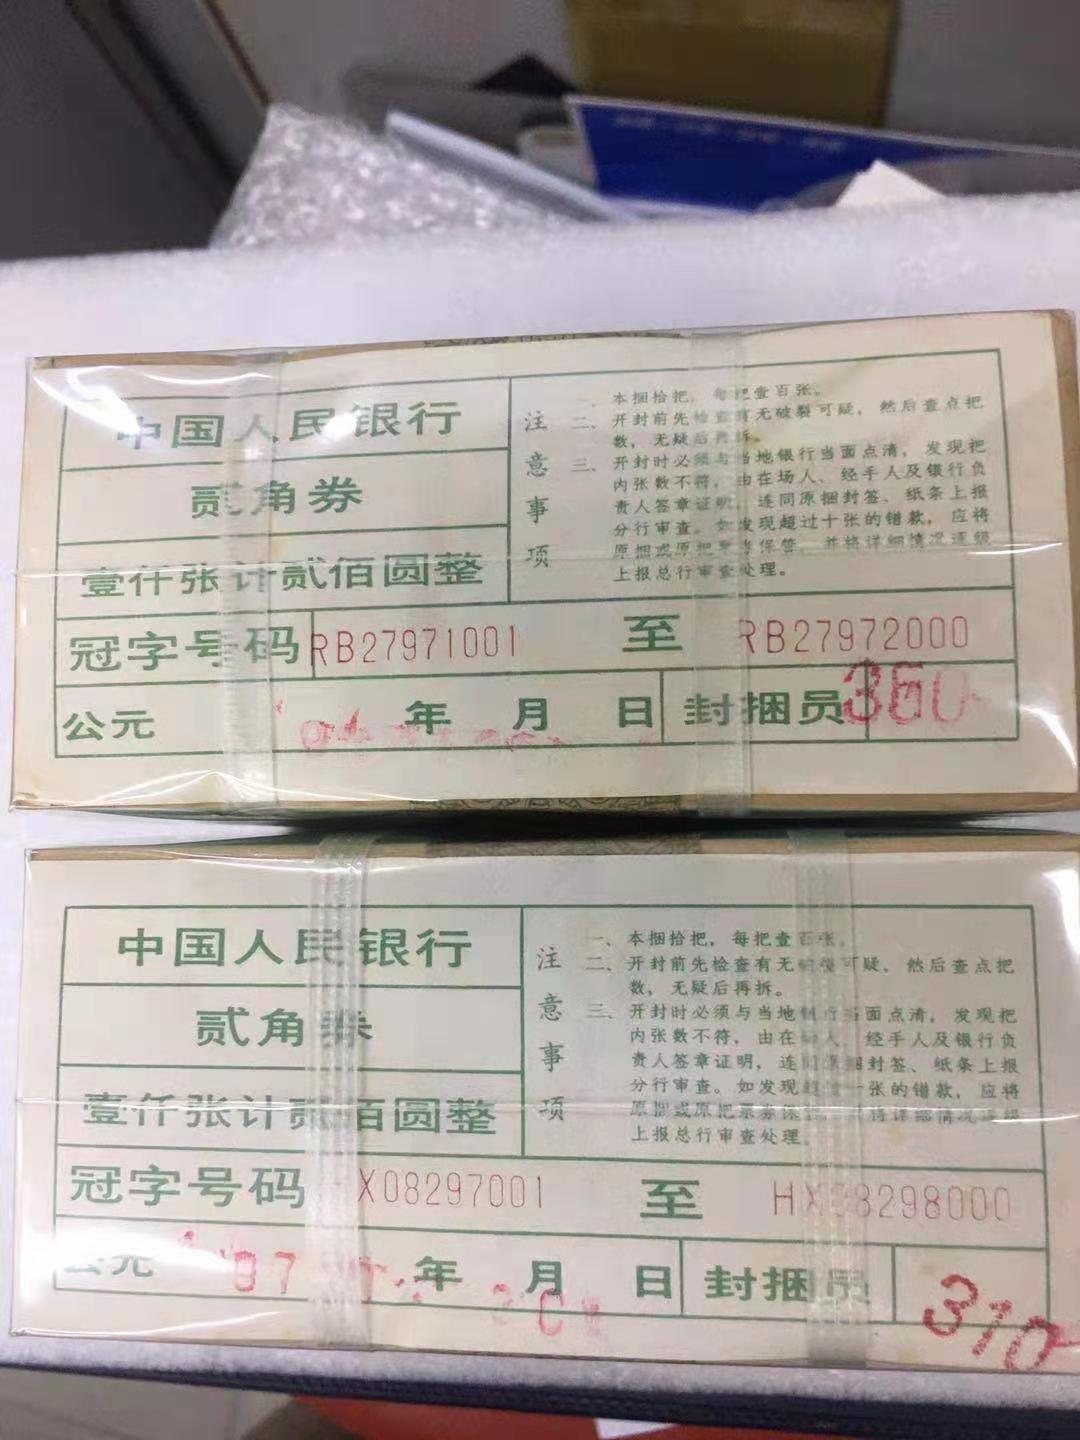 中国人民银行
贰角券
壹仟张计贰佰圆整
注意事项
一、本捆拾把，每把壹百张。
二、开封前先检查有无破裂可疑，然后查点把
数，无疑后再拆。
三、开封时必须与当地银行当面点清，发现把
内张数不符，由在场人、经手人及银行负
责人签章证明，连同原捆封签、纸条上报
分行审查。如发现超过十张的错款，应将
原捆或原把票券保管，并将详细情况逐级
上报总行审查处理。
冠字号码 RB27971001 至 RB27972000
公元 年 月 日 封捆员 360
中国人民银行
贰角券
壹仟张计贰佰圆整
注意事项
一、本捆拾把，每把壹百张。
二、开封前先检查有无破裂可疑，然后查点把
数，无疑后再拆。
三、开封时必须与当地银行当面点清，发现把
内张数不符，由在场人、经手人及银行负
责人签章证明，连同原捆封签、纸条上报
分行审查。如发现超过十张的错款，应将
原捆或原把票券保管，并将详细情况逐级
上报总行审查处理。
冠字号码 X08297001 至 HX08298000
公元 97 年 月 日 封捆员 310